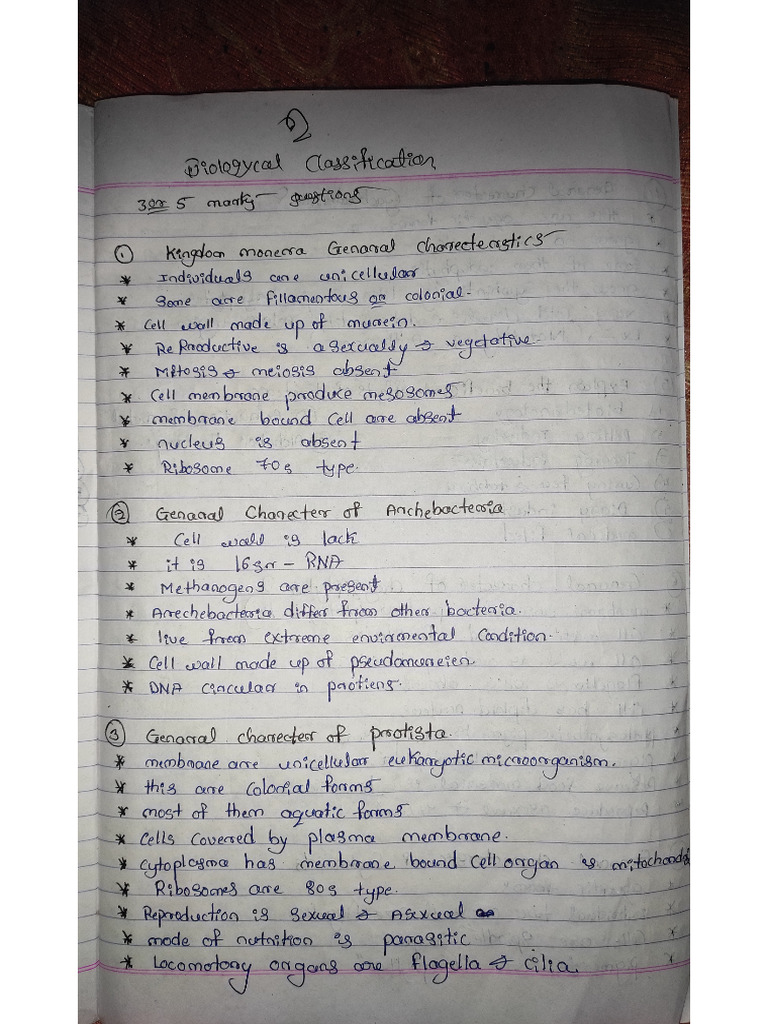 2
Biologycal Classification
3 or 5 marks questions
① Kingdom monera Genaral Charecteristics
* Individuals are unicellular
* Some are fillamentous or colonial.
* Cell wall made up of murein.
* ReProductive is asexually & vegetative
* Mitosis & meiosis absent
* Cell membrane produce mesosomes
* membrane bound Cell are absent
* nucleus is absent
* Ribosome 70s type.
② Genaral Charecter of Archebacteria
* Cell wall is lack
* it is 16sr - RNA
* Methanogens are present
* Arechebacteria differ from other bacteria.
* live from extreme envirmental Condition.
* Cell wall made up of pseudomureien.
* DNA circular in protiens.
③ Genaral charecter of protista.
* membrane are unicellular eukaryotic microorganism.
* this are Colonial forms
* most of them aquatic forms
* Cells Covered by plasma membrane.
* Cytoplasma has membrane bound Cell organ is
* Ribosomes are 80s type.
* Reproduction is Sexual & Asexual
* mode of nutrition is parasitic
* Locomotory organs are flagella & cilia.